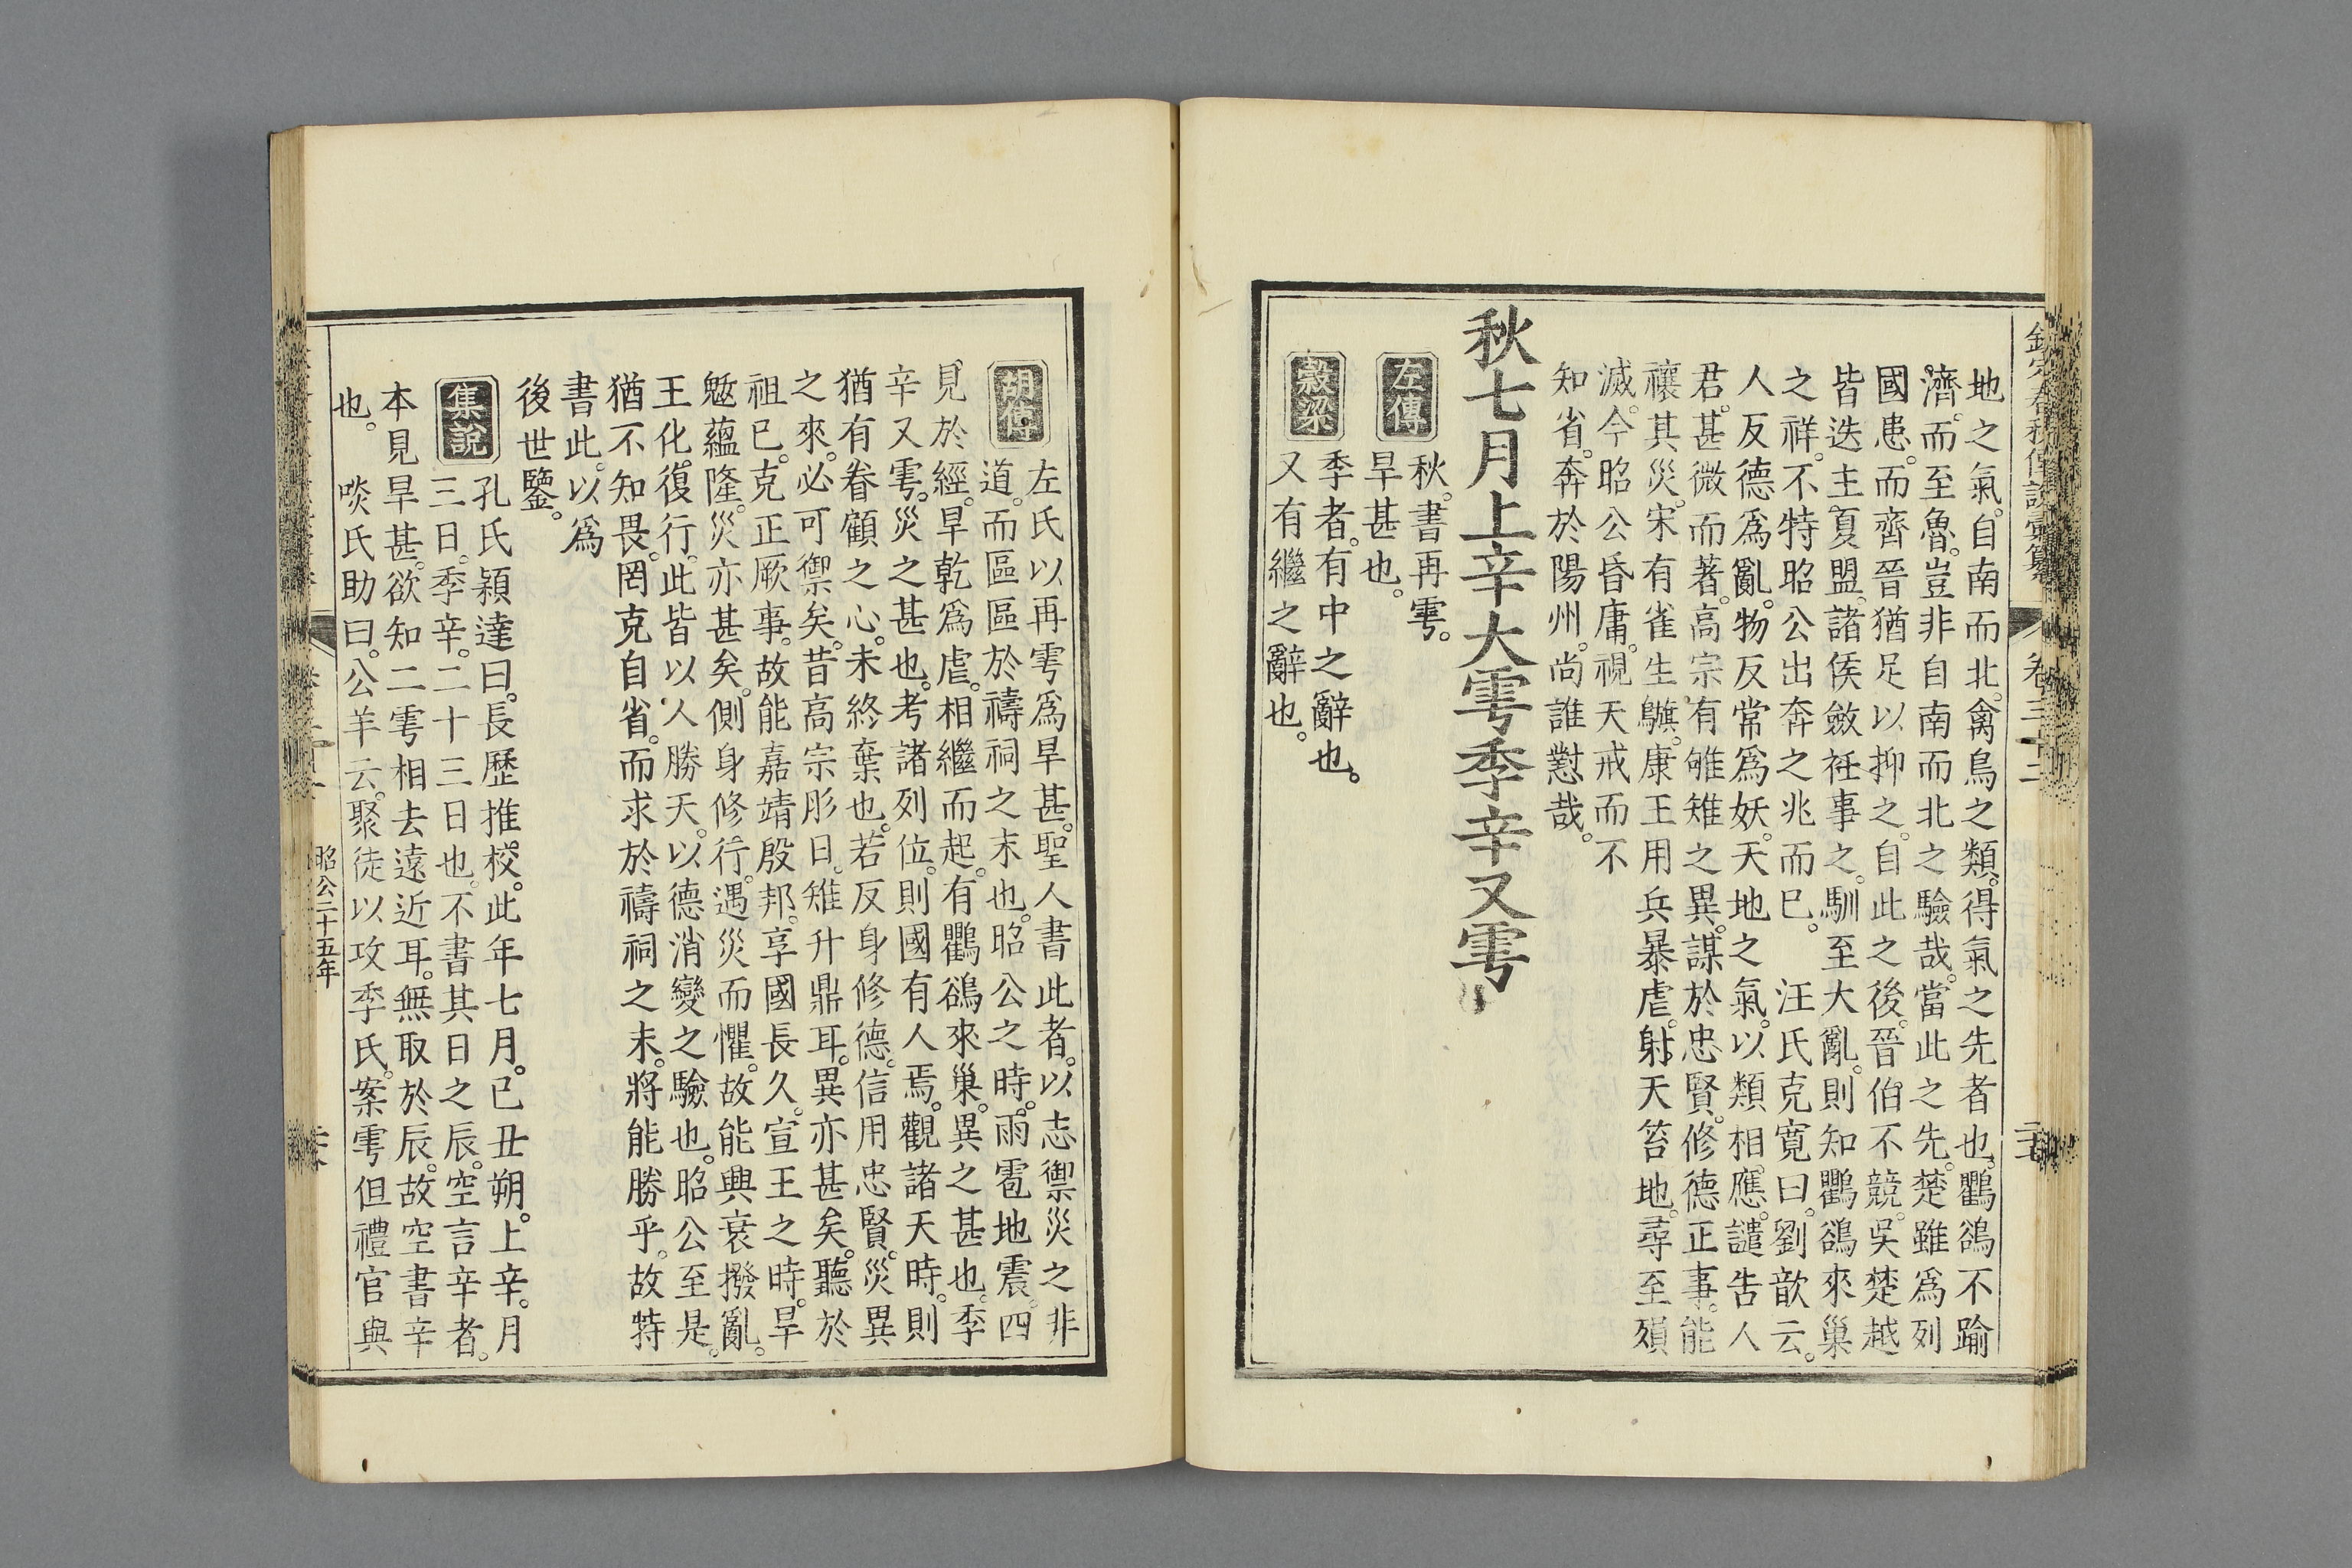 欽定春秋傳說彙纂 卷三十二
地之氣。自南而北。禽鳥之類。得氣之先者也。鸜鵒不踰
濟。而至魯。豈非自南而北之驗哉。當此之先。楚雖爲列
國患。而齊晉猶足以抑之。自此之後。晉伯不競。吳楚越
皆迭主夏盟。諸侯斂衽事之。馴至大亂。則知鸜鵒來巢
之祥。不特昭公出奔之兆而已。 汪氏克寬曰。劉歆云。
人反德爲亂。物反常爲妖。天地之氣。以類相應。譴告人
君。甚微而著。高宗有雊雉之異。謀於忠賢。修德正事。能
禳其災。宋有雀生鸇。康王用兵暴虐。射天笞地。尋至殞
滅。今昭公昏庸。視天戒而不
知省。奔於陽州。尚誰懟哉。
秋七月上辛大雩季辛又雩
左傳
秋。書再雩。
旱甚也。
穀梁
季者。有中之辭也。
又有繼之辭也。
胡傳
左氏以再雩爲旱甚。聖人書此者。以志禦災之非
道。而區區於禱祠之末也。昭公之時。雨雹地震。四
見於經。旱乾爲虐。相繼而起。有鸜鵒來巢。異之甚也。季
辛又雩。災之甚也。考諸列位。則國有人焉。觀諸天時。則
猶有眷顧之心。未終棄也。若反身修德。信用忠賢。災異
之來。必可禦矣。昔高宗肜日。雉升鼎耳。異亦甚矣。聽於
祖已。克正厥事。故能嘉靖殷邦。享國長久。宣王之時。旱
魃蘊隆。災亦甚矣。側身修行。遇災而懼。故能興衰撥亂。
王化。復行。此皆以人勝天。以德消變之驗也。昭公至是。
猶不知畏。罔克自省。而求於禱祠之末。將能勝乎。故特
書此。以爲
後世鑒。
集說
孔氏穎達曰。長歷推校。此年七月。已丑朔。上辛。月
三日。季辛。二十三日也。不書其日之辰。空言辛者。
本見旱甚。欲知二雩相去遠近耳。無取於辰。故空書辛
也。 啖氏助曰。公羊云。聚徒以攻季氏。案雩但禮官與
昭公二十五年